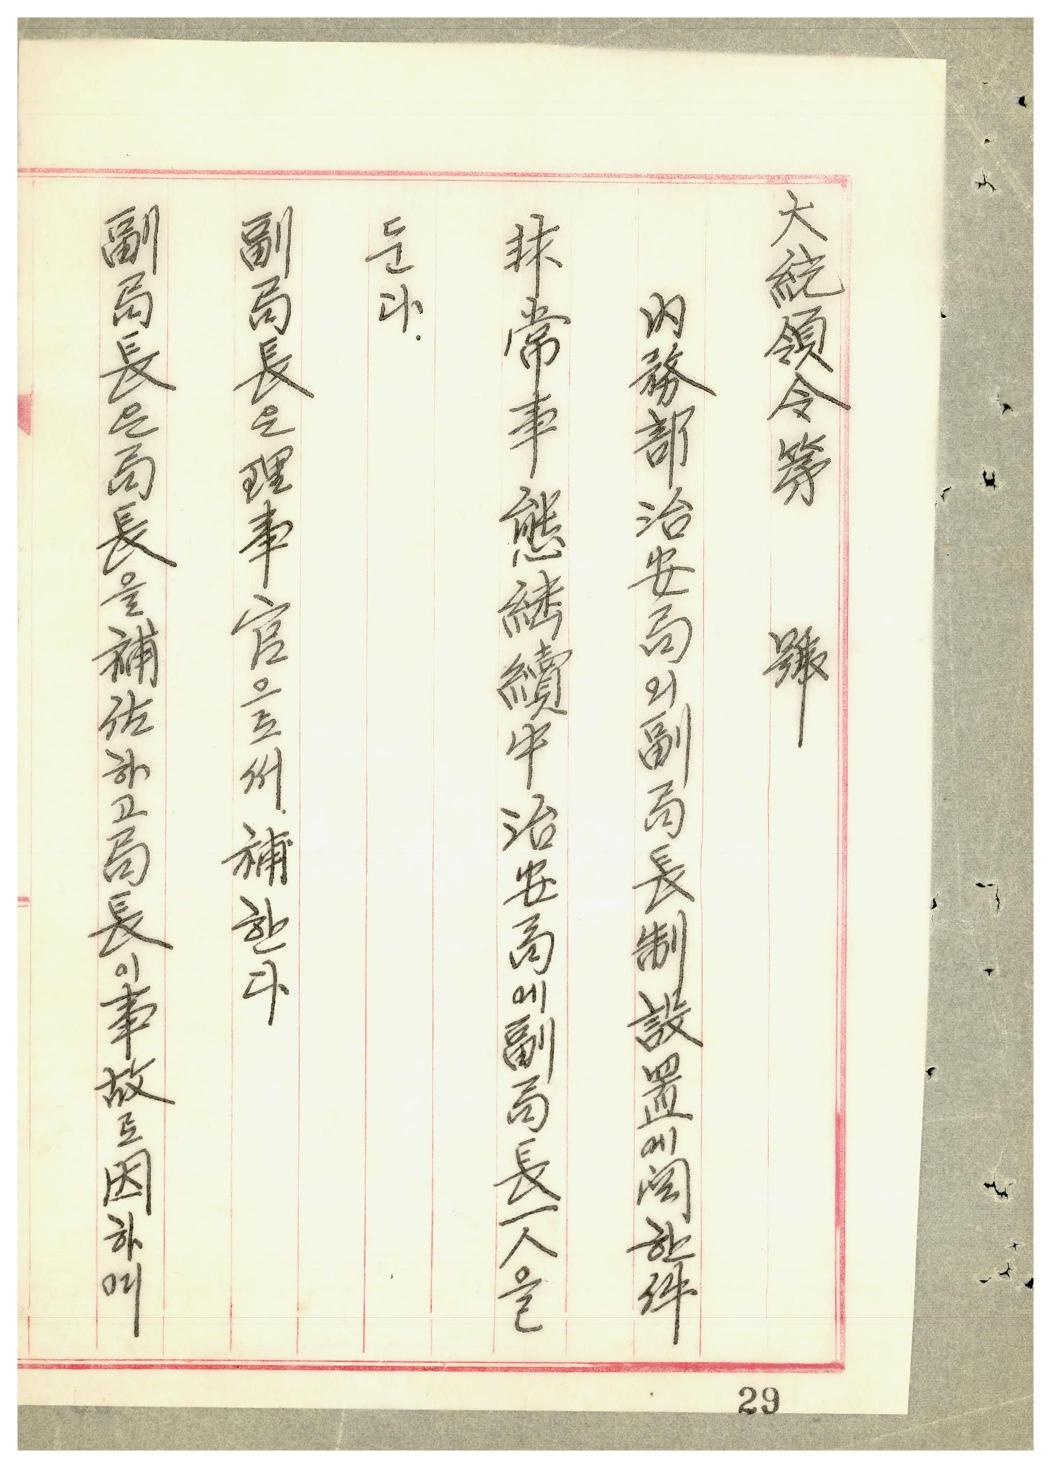 大統領令第 號
內務部治安局의副局長制設置에関한件
非常事態継續中治安局에副局長一人을
둔다.
副局長은理事官으로써.補한다
副局長은局長을補佐하고局長이事故로因하여
29